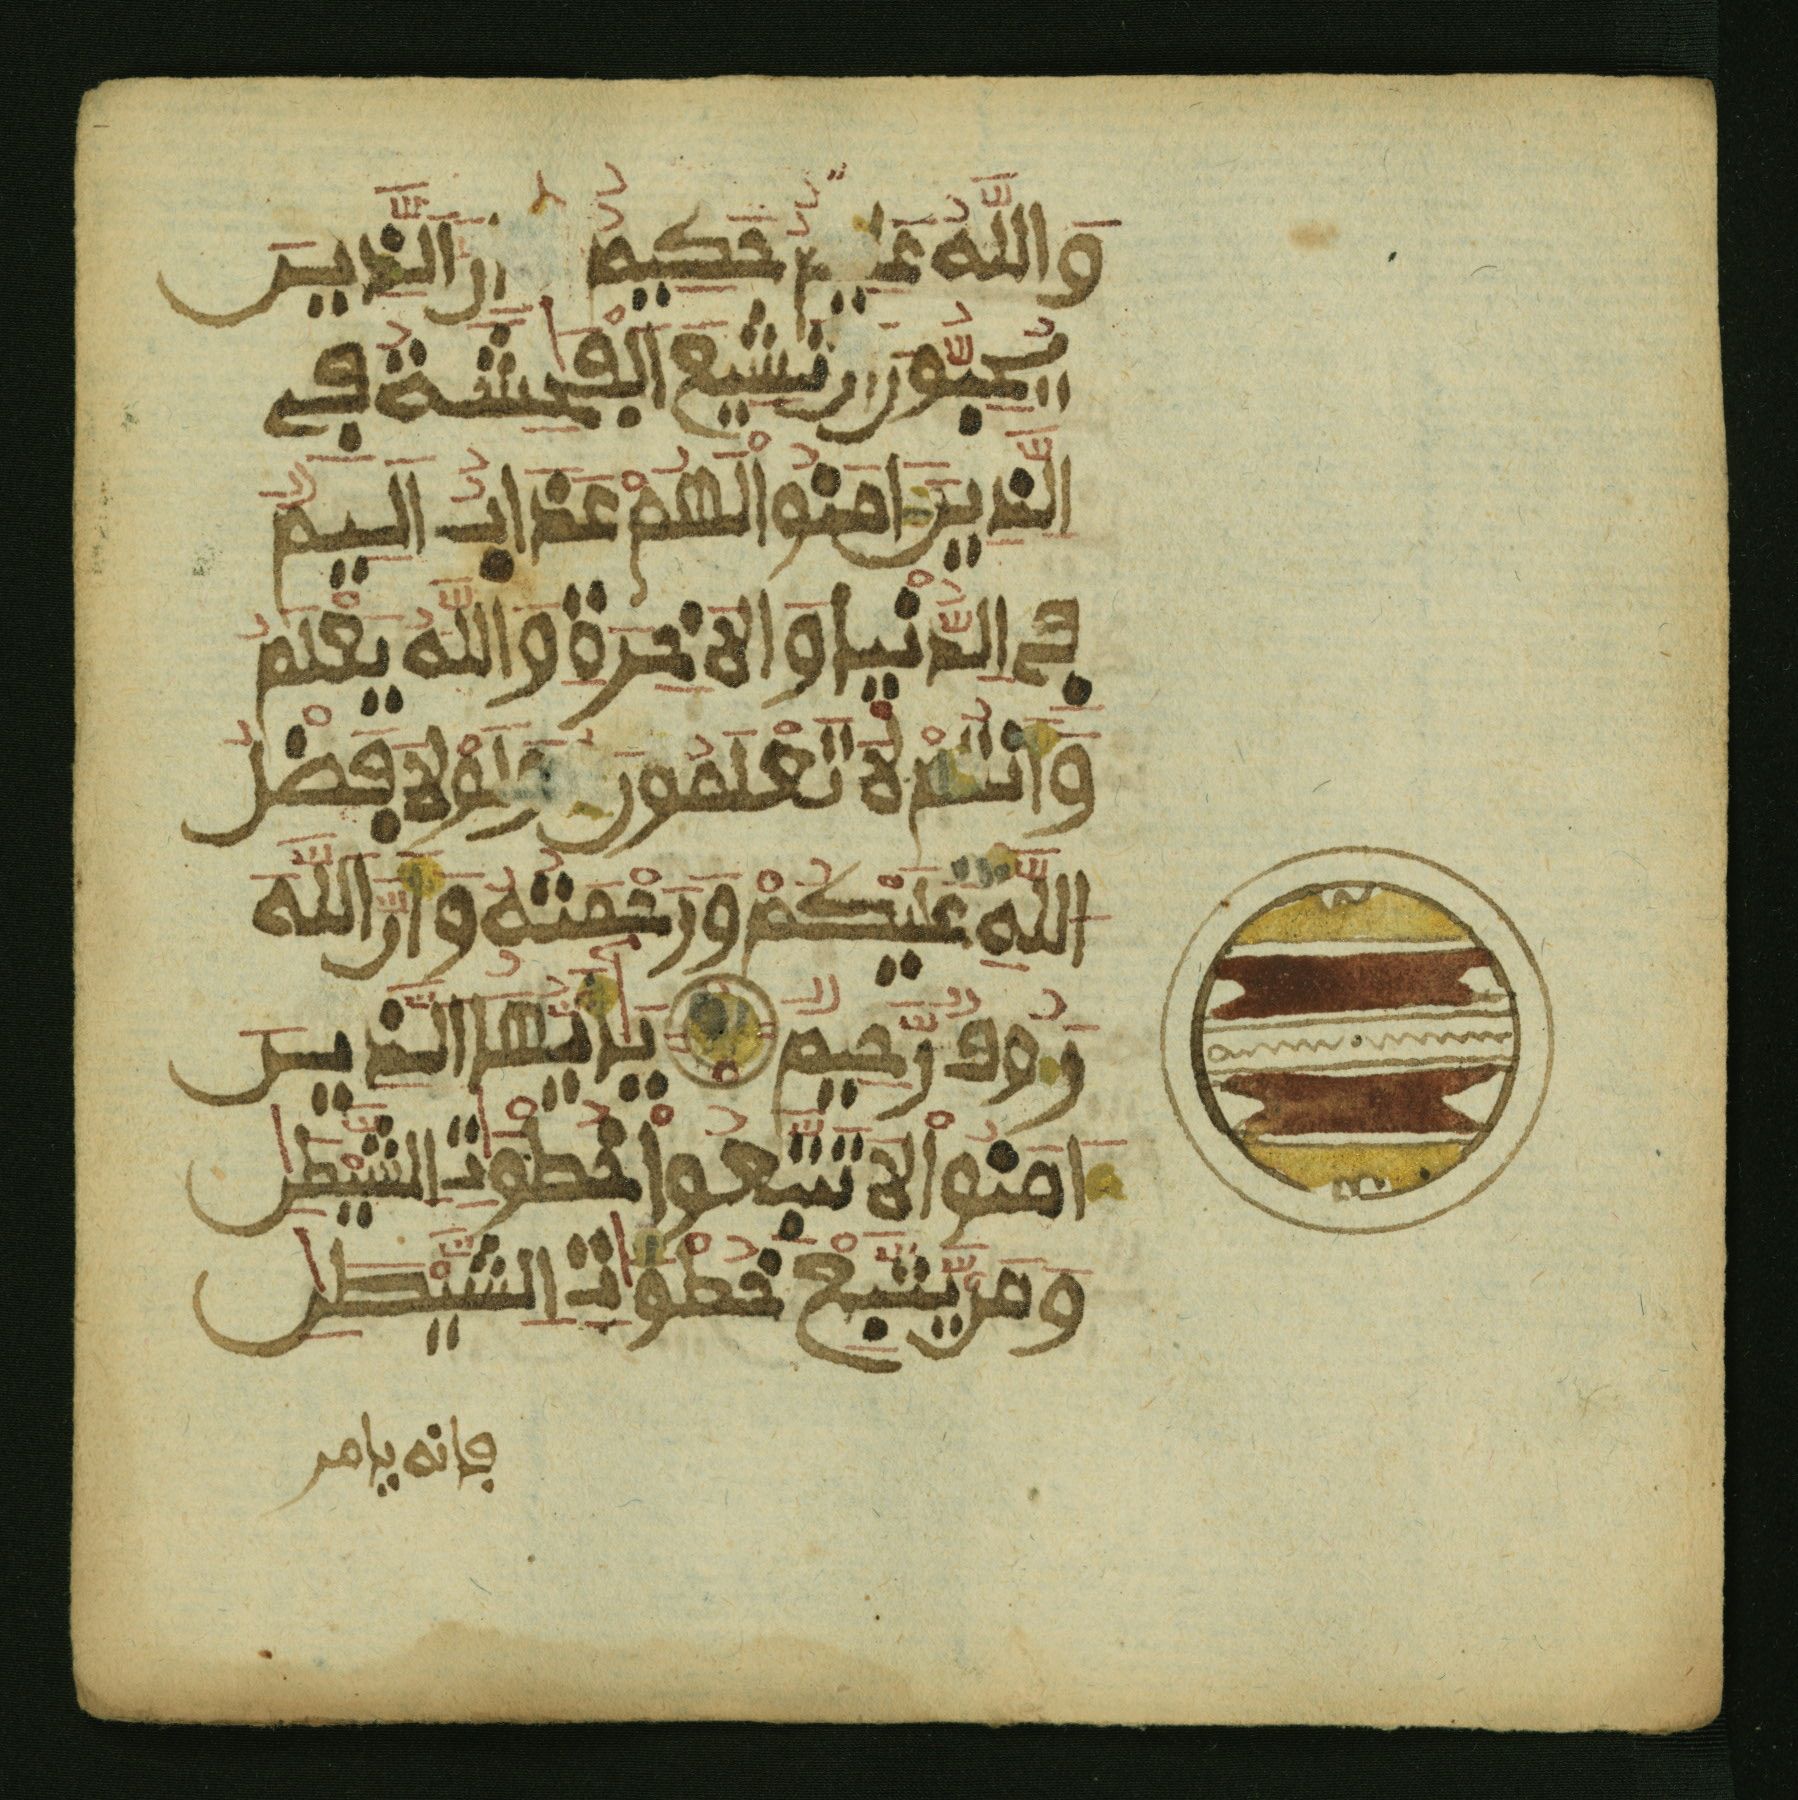 وَاللَّهُ عَلِيمٌ حَكِيمٌ اِنَّ الذِينَ
يُحِبُّونَ أَن تَشِيعَ الْفَٰحِشَةُ فِے
الذِينَ ءَامَنُواْ لَهُمْ عَذَابٌ اَلِيمٌ
فِے الدُّنْيَا وَالَاخِرَةِ وَاللَّهُ يَعْلَمُ
وَأَنتُمْ لَا تَعْلَمُونَ وَلَوْلَا فَضْلُ
اللَّهِ عَلَيْكُمْ وَرَحْمَتُهُ وَأَنَّ اللَّهَ
رَءُوفٌ رَّحِيمٌ يَٰأَيُّهَا الذِينَ
ءَامَنُواْ لَا تَتَّبِعُواْ خُطْوَٰتِ الشَّيْطَٰنِ
وَمَنْ يَّتَّبِعْ خُطْوَٰتِ الشَّيْطَٰنِ
فانه يامر